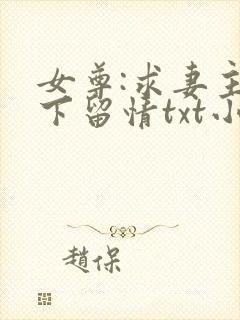 女尊:求妻主
下留情txt小
趙保